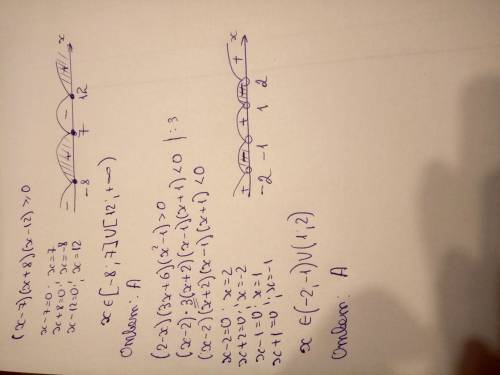 (x-7)(x+8)(x-12)≥0
x-7=0; x=7
x+8=0; x=-8
x-12=0; x=12
- + - + x
-8 7 12
x∈[-8;7]∪[12;+∞)
Ответ: А
(2-x)(3x+6)(x²-1)>0
(x-2)·3(x+2)(x-1)(x+1)<0 |:3
(x-2)(x+2)(x-1)(x+1)<0
x-2=0; x=2
x+2=0; x=-2
x-1=0; x=1
x+1=0; x=-1
+ - + - + x
-2 -1 1 2
x∈(-2;-1)∪(1;2)
Ответ: А